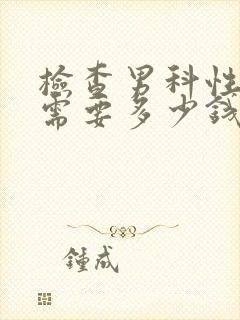 檢查男科性
需要多少錢
鍾成